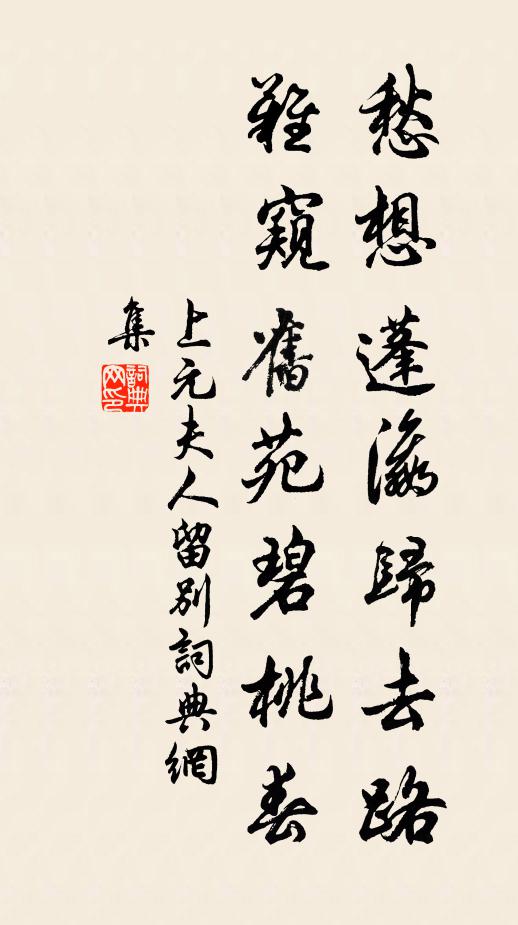 愁想蓬瀛歸去路
難窺舊苑碧桃春
上元夫人留別詞典網
集
詞典
网印